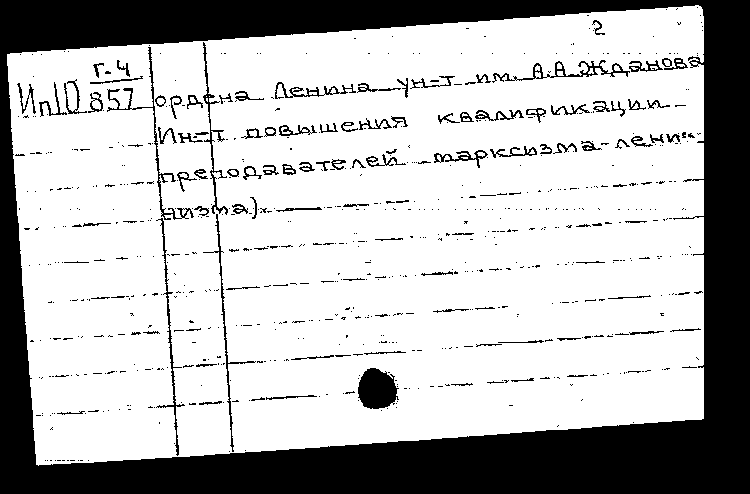 2
Г-4
Ип10 857 ордена Ленина ун-т им. А.А.Жданова
Ин-т повышения квалификации
преподавателей марксизма-лени-
низма).